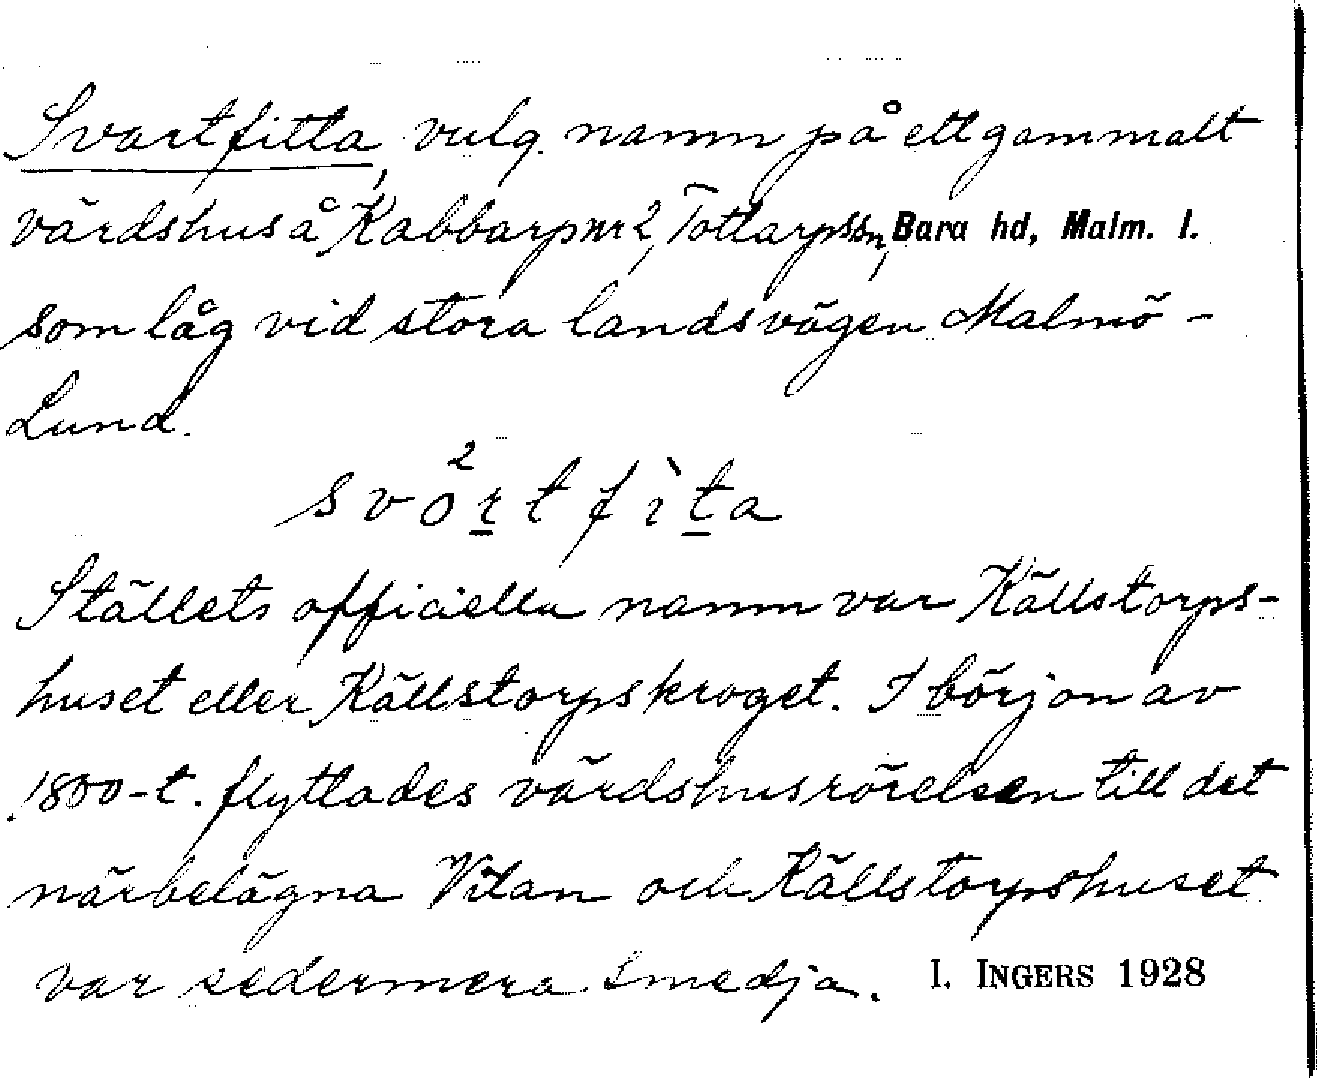 Svartfitta, vulg. namn på ett gammalt
värdshus å Kabbarp nr 2, Tottarps sn, Bara hd, Malm. l.
som låg vid stora landsvägen Malmö -
Lund.
svo²rtfìta
Ställets officiella namn var Källstorps-
huset eller Källstorpskroget. I början av
1800-t. flyttades värdshusrörelsen till det
närbelägna Vitan och Källstorpshuset
var sedermera smedja. I. INGERS 1928